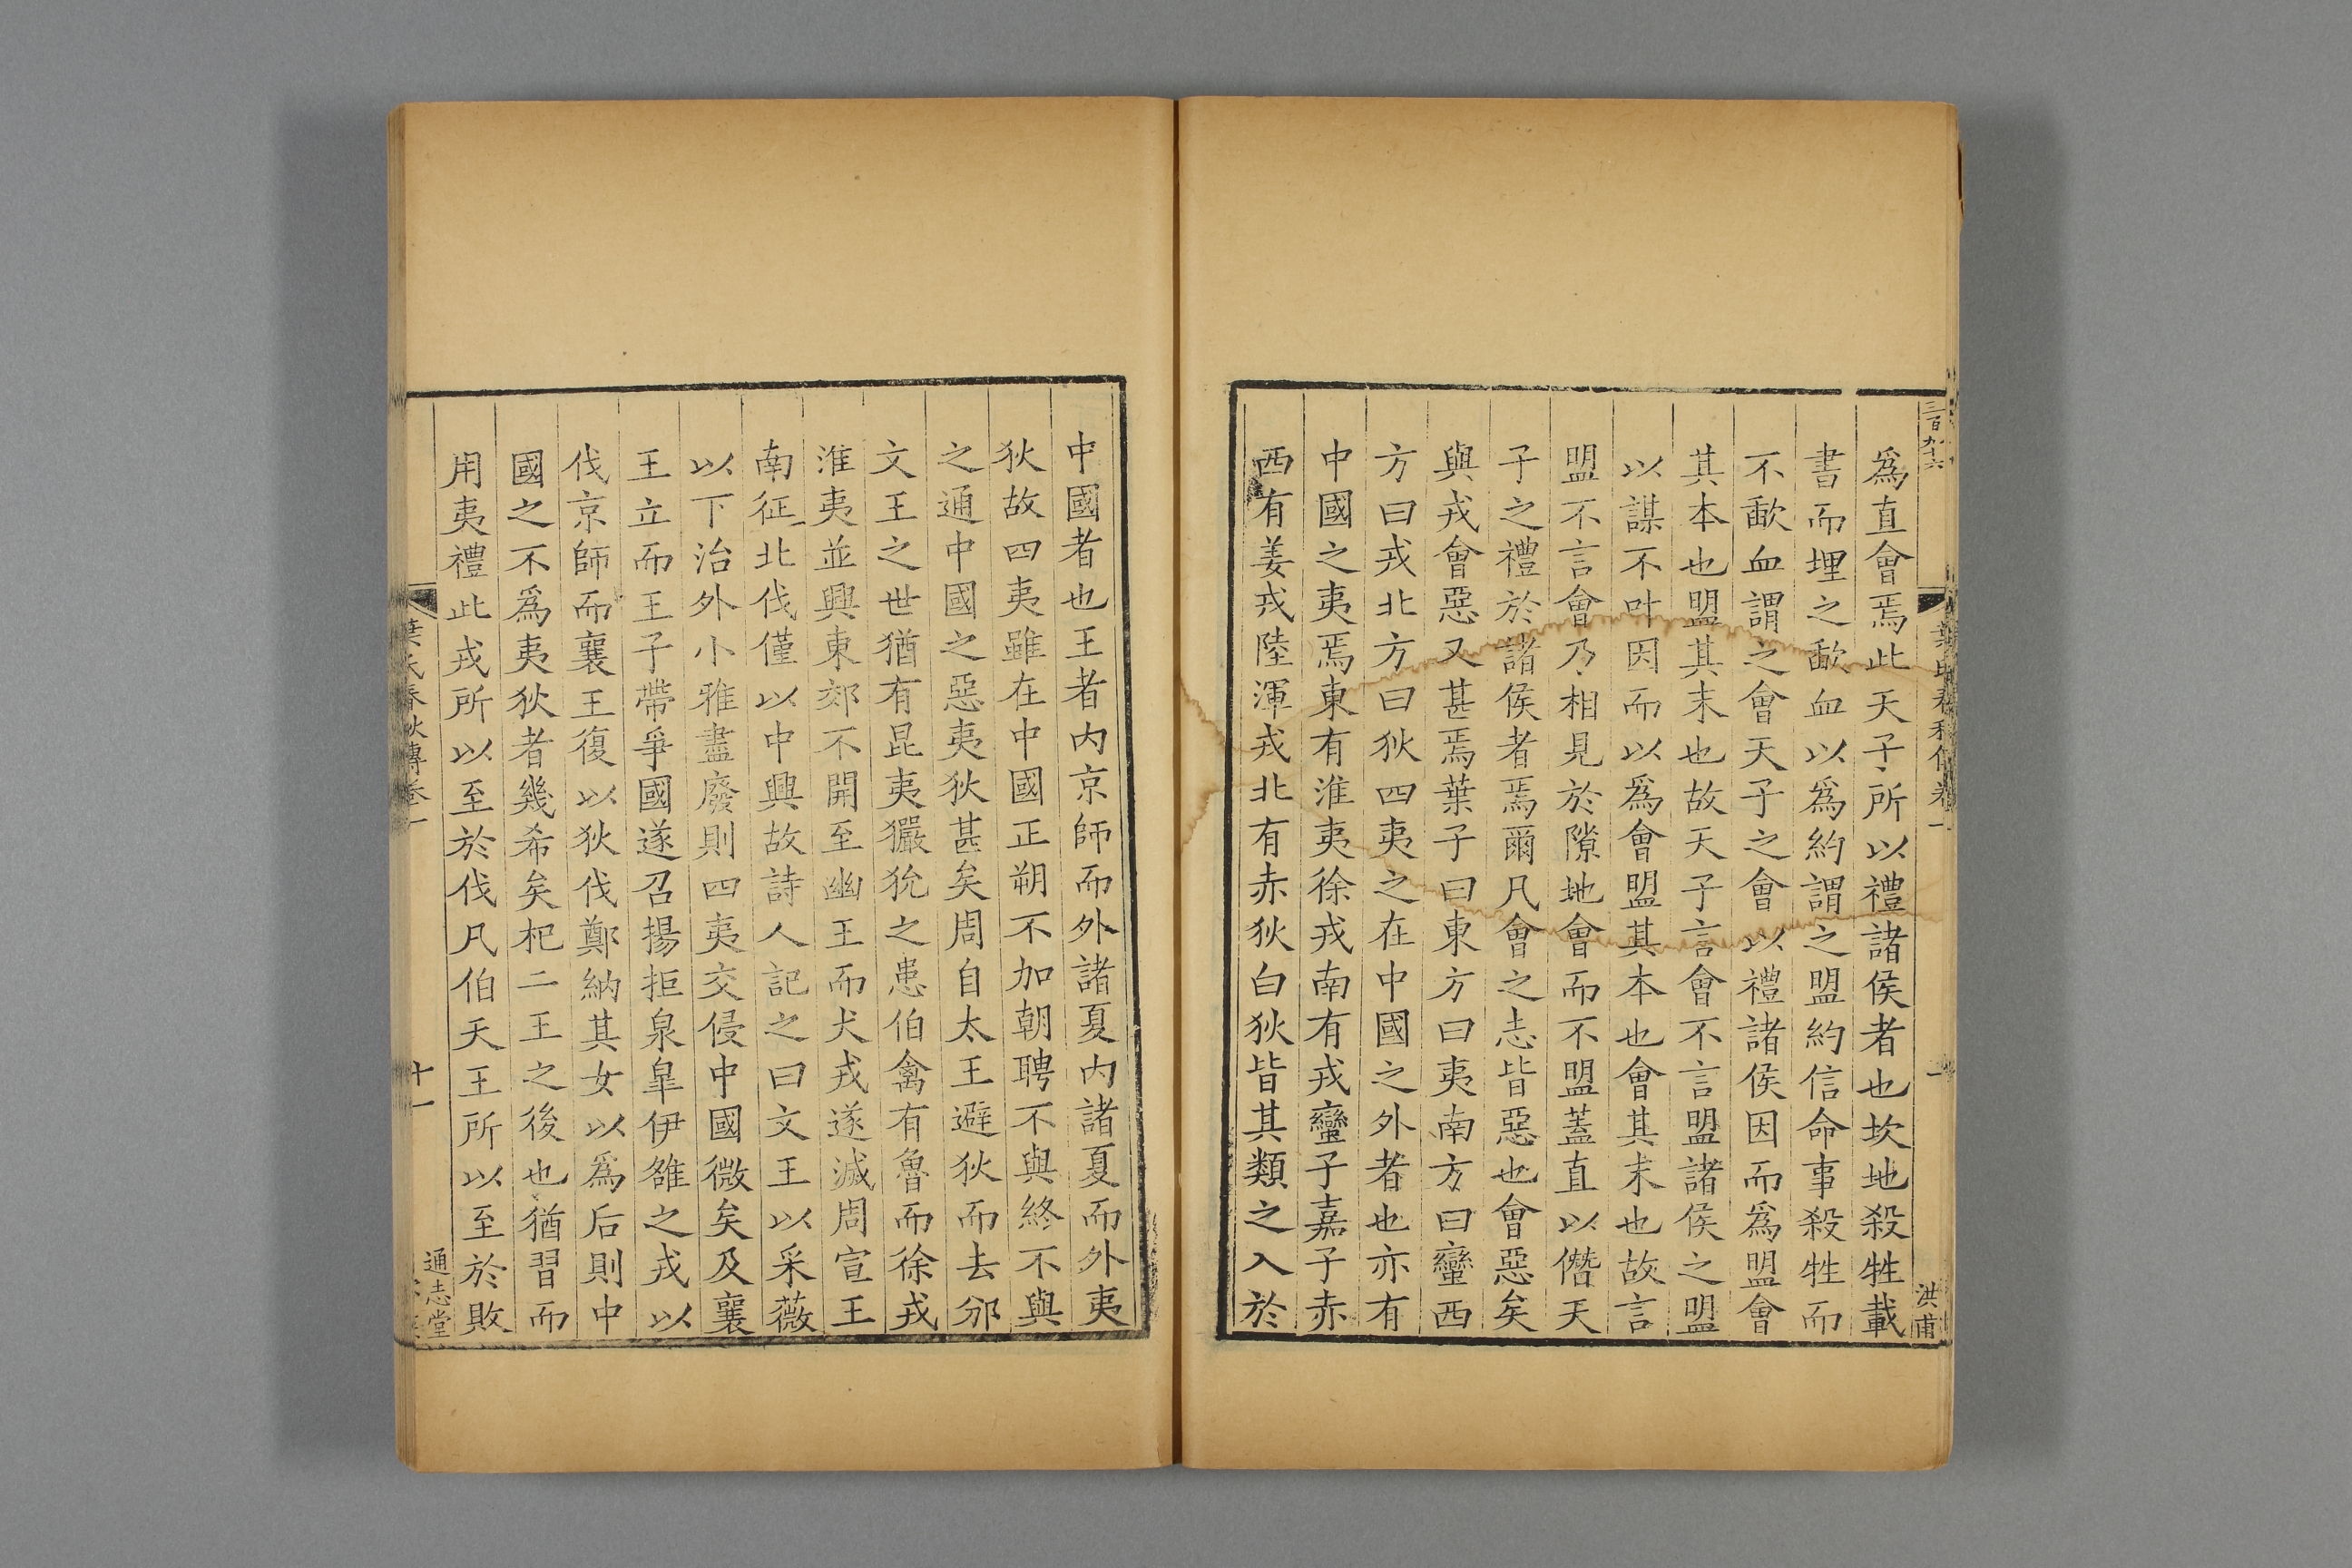 三百九十六
爲直會焉此天子所以禮諸侯者也坎地殺牲載
書而埋之歃血以爲約謂之盟約信命事殺牲而
不歃血謂之會天子之會以禮諸侯因而爲盟會
其本也盟其末也故天子言會不言盟諸侯之盟
以謀不叶因而以爲會盟其本也會其末也故言
盟不言會乃相見於隙地會而不盟蓋直以僭天
子之禮於諸侯者焉爾凡會之志皆惡也會惡矣
與戎會惡又甚焉葉子曰東方曰夷南方曰蠻西
方曰戎北方曰狄四夷之在中國之外者也亦有
中國之夷焉東有淮夷徐戎南有戎蠻子嘉子赤
西有姜戎陸渾戎北有赤狄白狄皆其類之入於
洪甫
中國者也王者内京師而外諸夏内諸夏而外夷
狄故四夷雖在中國正朔不加朝聘不與終不與
之通中國之惡夷狄甚矣周自太王避狄而去邠
文王之世猶有昆夷玁狁之患伯禽有魯而徐戎
淮夷並興東郊不開至幽王而犬戎遂滅周宣王
南征北伐僅以中興故詩人記之曰文王以采薇
以下治外小雅盡廢則四夷交侵中國微矣及襄
王立而王子帶爭國遂召揚拒泉臯伊雒之戎以
伐京師而襄王復以狄伐鄭納其女以爲后則中
國之不爲夷狄者幾希矣杞二王之後也猶習而
用夷禮此戎所以至於伐凡伯天王所以至於敗
葉氏春秋傳卷一
十一
通志堂